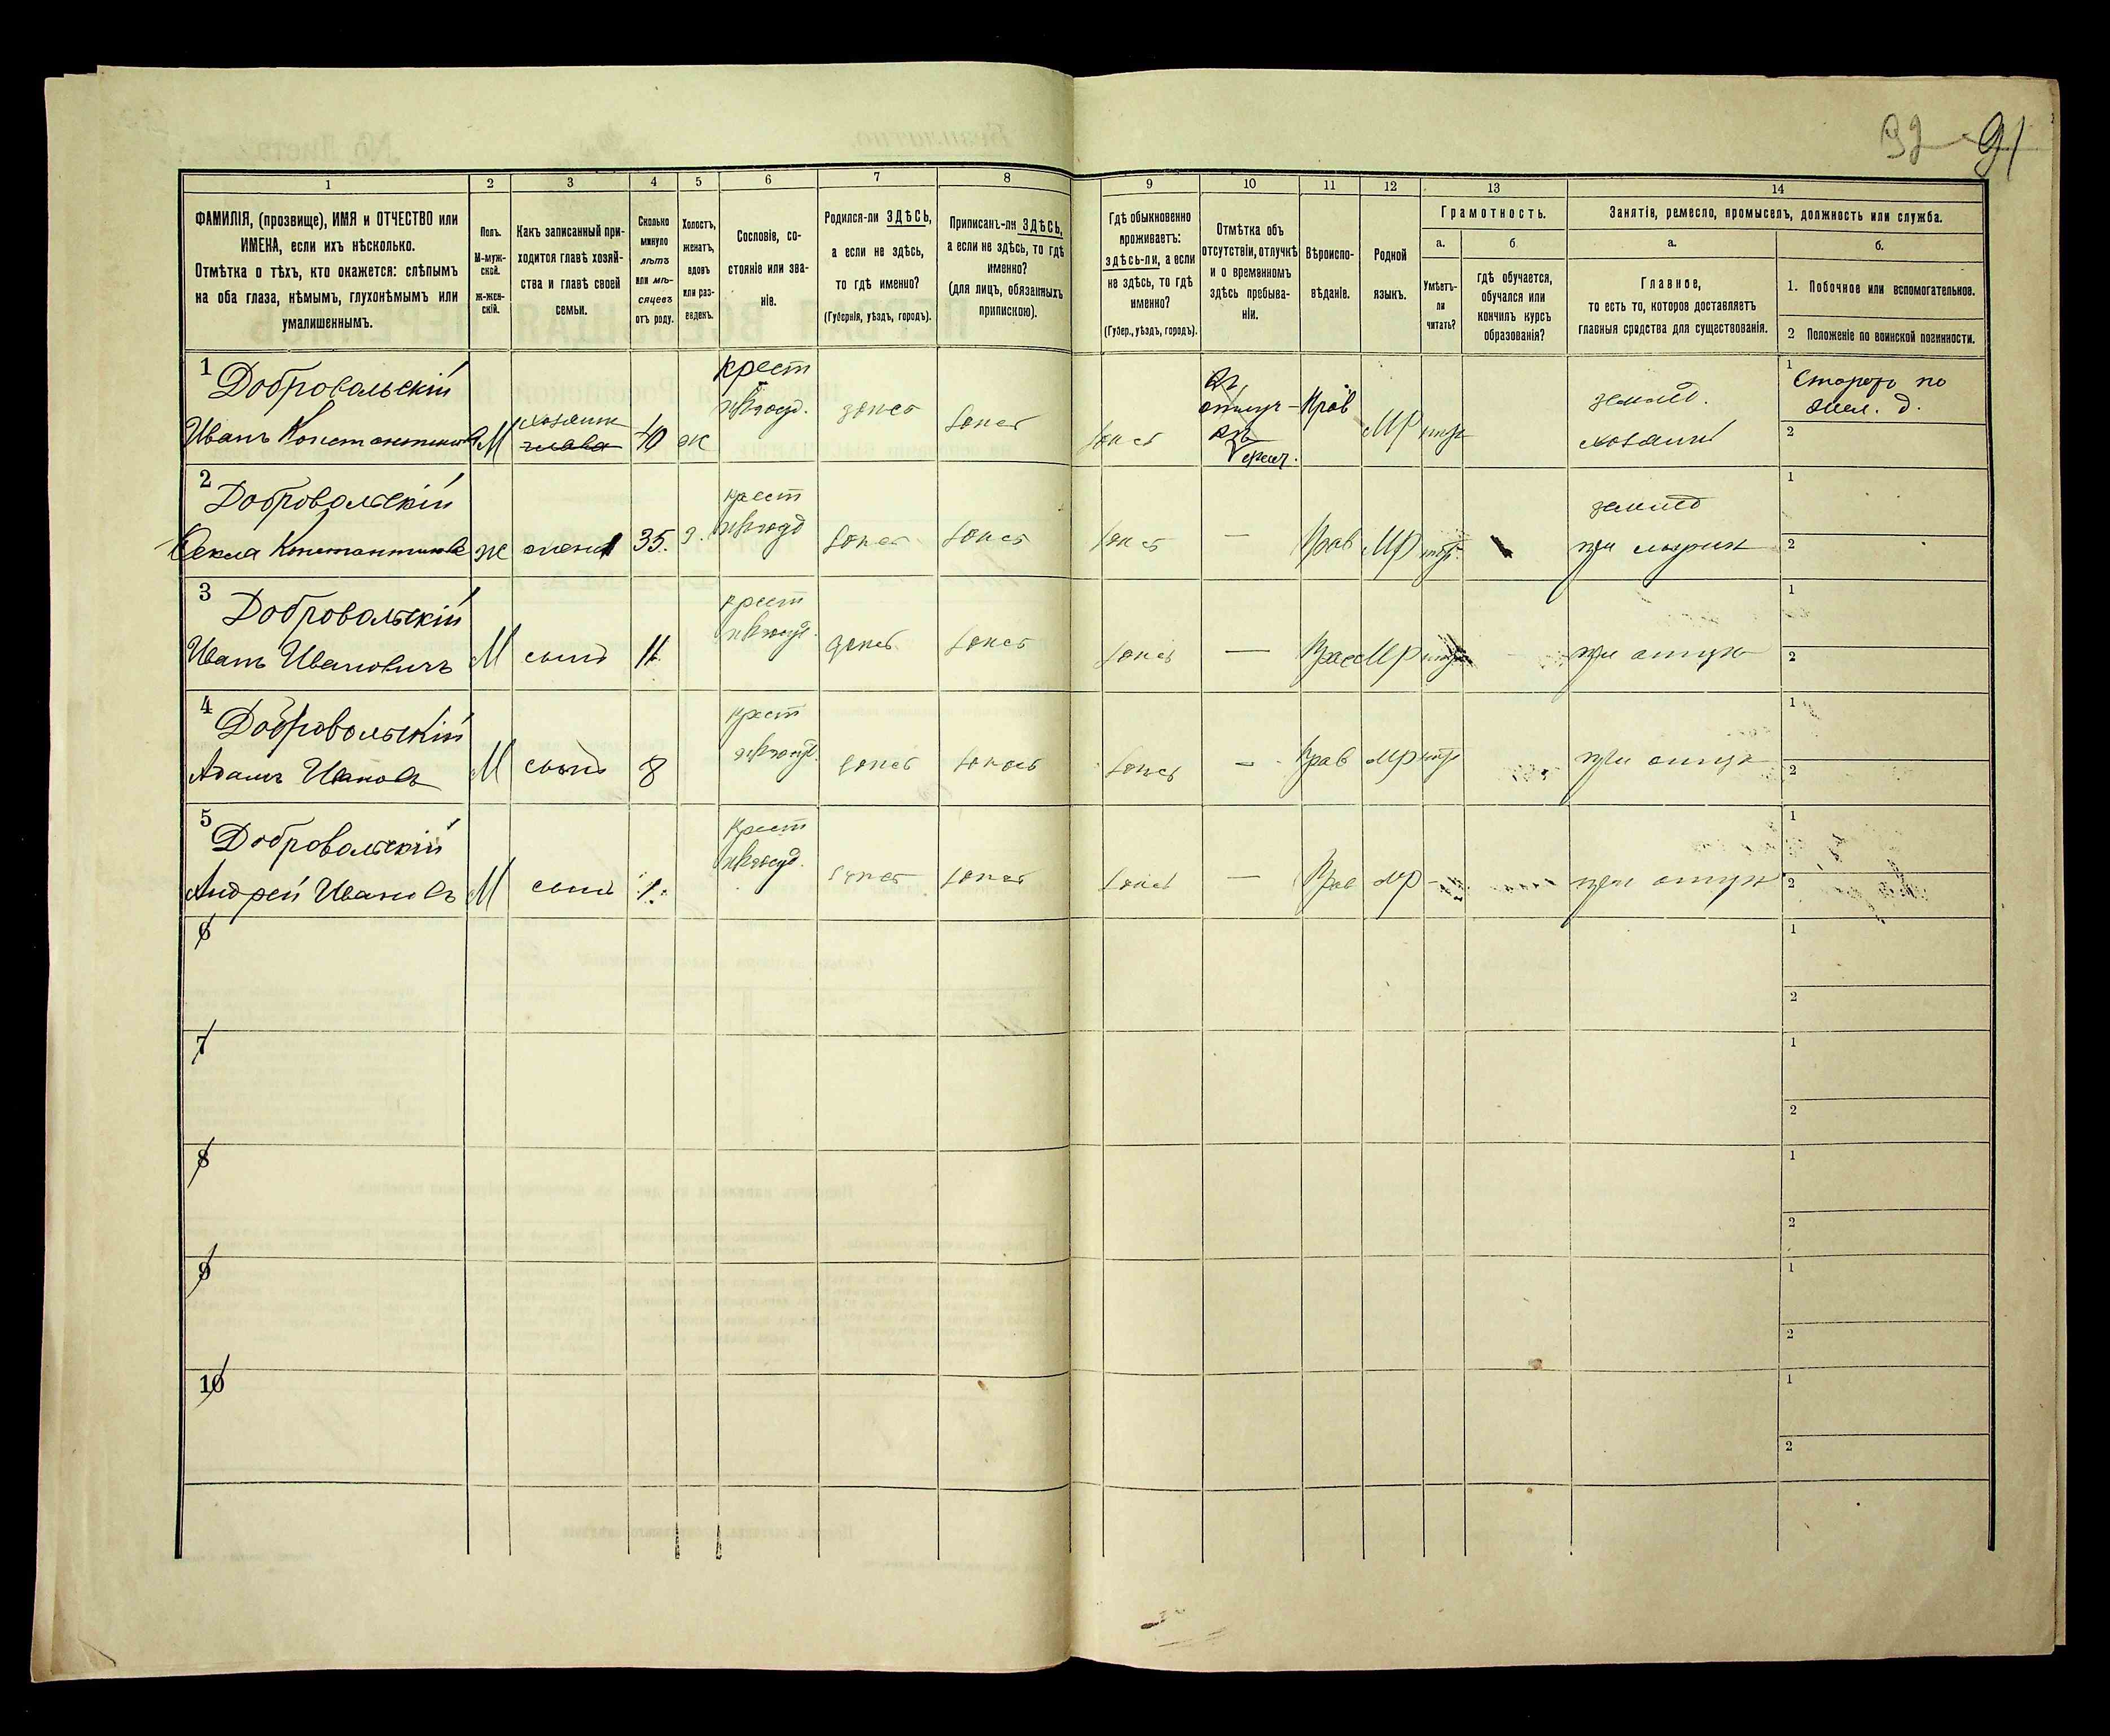 91
1
2
3
4
5
6
7
8
9
10
11
12
13
14
ФАМИЛІЯ, (прозвище), ИМЯ и ОТЧЕСТВО или
ИМЕНА, если ихъ нѣсколько.
Отмѣтка о тѣхъ, кто окажется: слѣпымъ
на оба глаза, нѣмымъ, глухонѣмымъ или
умалишеннымъ.
Полъ.
М-муж-
ской.
ж-жен-
скій.
Какъ записанный при-
ходится главѣ хозяй-
ства и главѣ своей
семьи.
Сколько
минуло
лѣтъ
или мѣ-
сяцевъ
отъ роду.
Холостъ,
женатъ,
вдовъ
или раз-
веденъ.
Сословіе, со-
стояніе или зва-
ніе.
Родился-ли ЗДѢСЬ,
а если не здѣсь,
то гдѣ именно?
(Губернія, уѣздъ, городъ).
Приписанъ-ли ЗДѢСЬ,
а если не здѣсь, то гдѣ
именно?
(для лицъ, обязанныхъ
припискою).
Гдѣ обыкновенно
проживаетъ:
здѣсь-ли, а если
не здѣсь, то гдѣ
именно?
(Губер., уѣздъ, городъ).
Отмѣтка объ
отсутствіи, отлучкѣ
и о временномъ
здѣсь пребыва-
ніи.
Вѣроиспо-
вѣданіе.
Родной
языкъ.
Грамотность.
а.
Умѣетъ-
ли
читать?
б
гдѣ обучается,
обучался или
кончилъ курсъ
образованія?
Занятіе, ремесло, промыселъ, должность или служба.
а.
Главное,
то есть то, которое доставляетъ
главныя средства для существованія.
б.
1. Побочное или вспомогательное.
2 Положеніе по воинской повинности.
1 Добровальскій
Иванъ
М
хозяинъ
глава
40
ж
крест
здѣсь
здѣсь
здѣсь
Прав
МР
землед.
хозяинъ
1
2
2 Добровольскій
Ѳекла
ж
жена
35.
з.
крест
здѣсь
здѣсь
здѣсь
—
Прав
МР
землед
при
1
2
3 Добровальскій
Иванъ Ивановичъ
М
сынъ
11
крест
здѣсь
здѣсь
здѣсь
—
Прав
МР
при отцѣ
1
2
4 Добровольскій
Адамъ Ивановъ
М
сынъ
8
крест
здѣсь
здѣсь
здѣсь
—
Прав
МР
при отцѣ
1
2
5 Добровальскій
Андрей Ивановъ
М
сынъ
1
крест
здѣсь
здѣсь
здѣсь
—
Прав
МР
—
при отцѣ
1
2
6
1
2
7
1
2
8
1
2
9
1
2
10
1
2